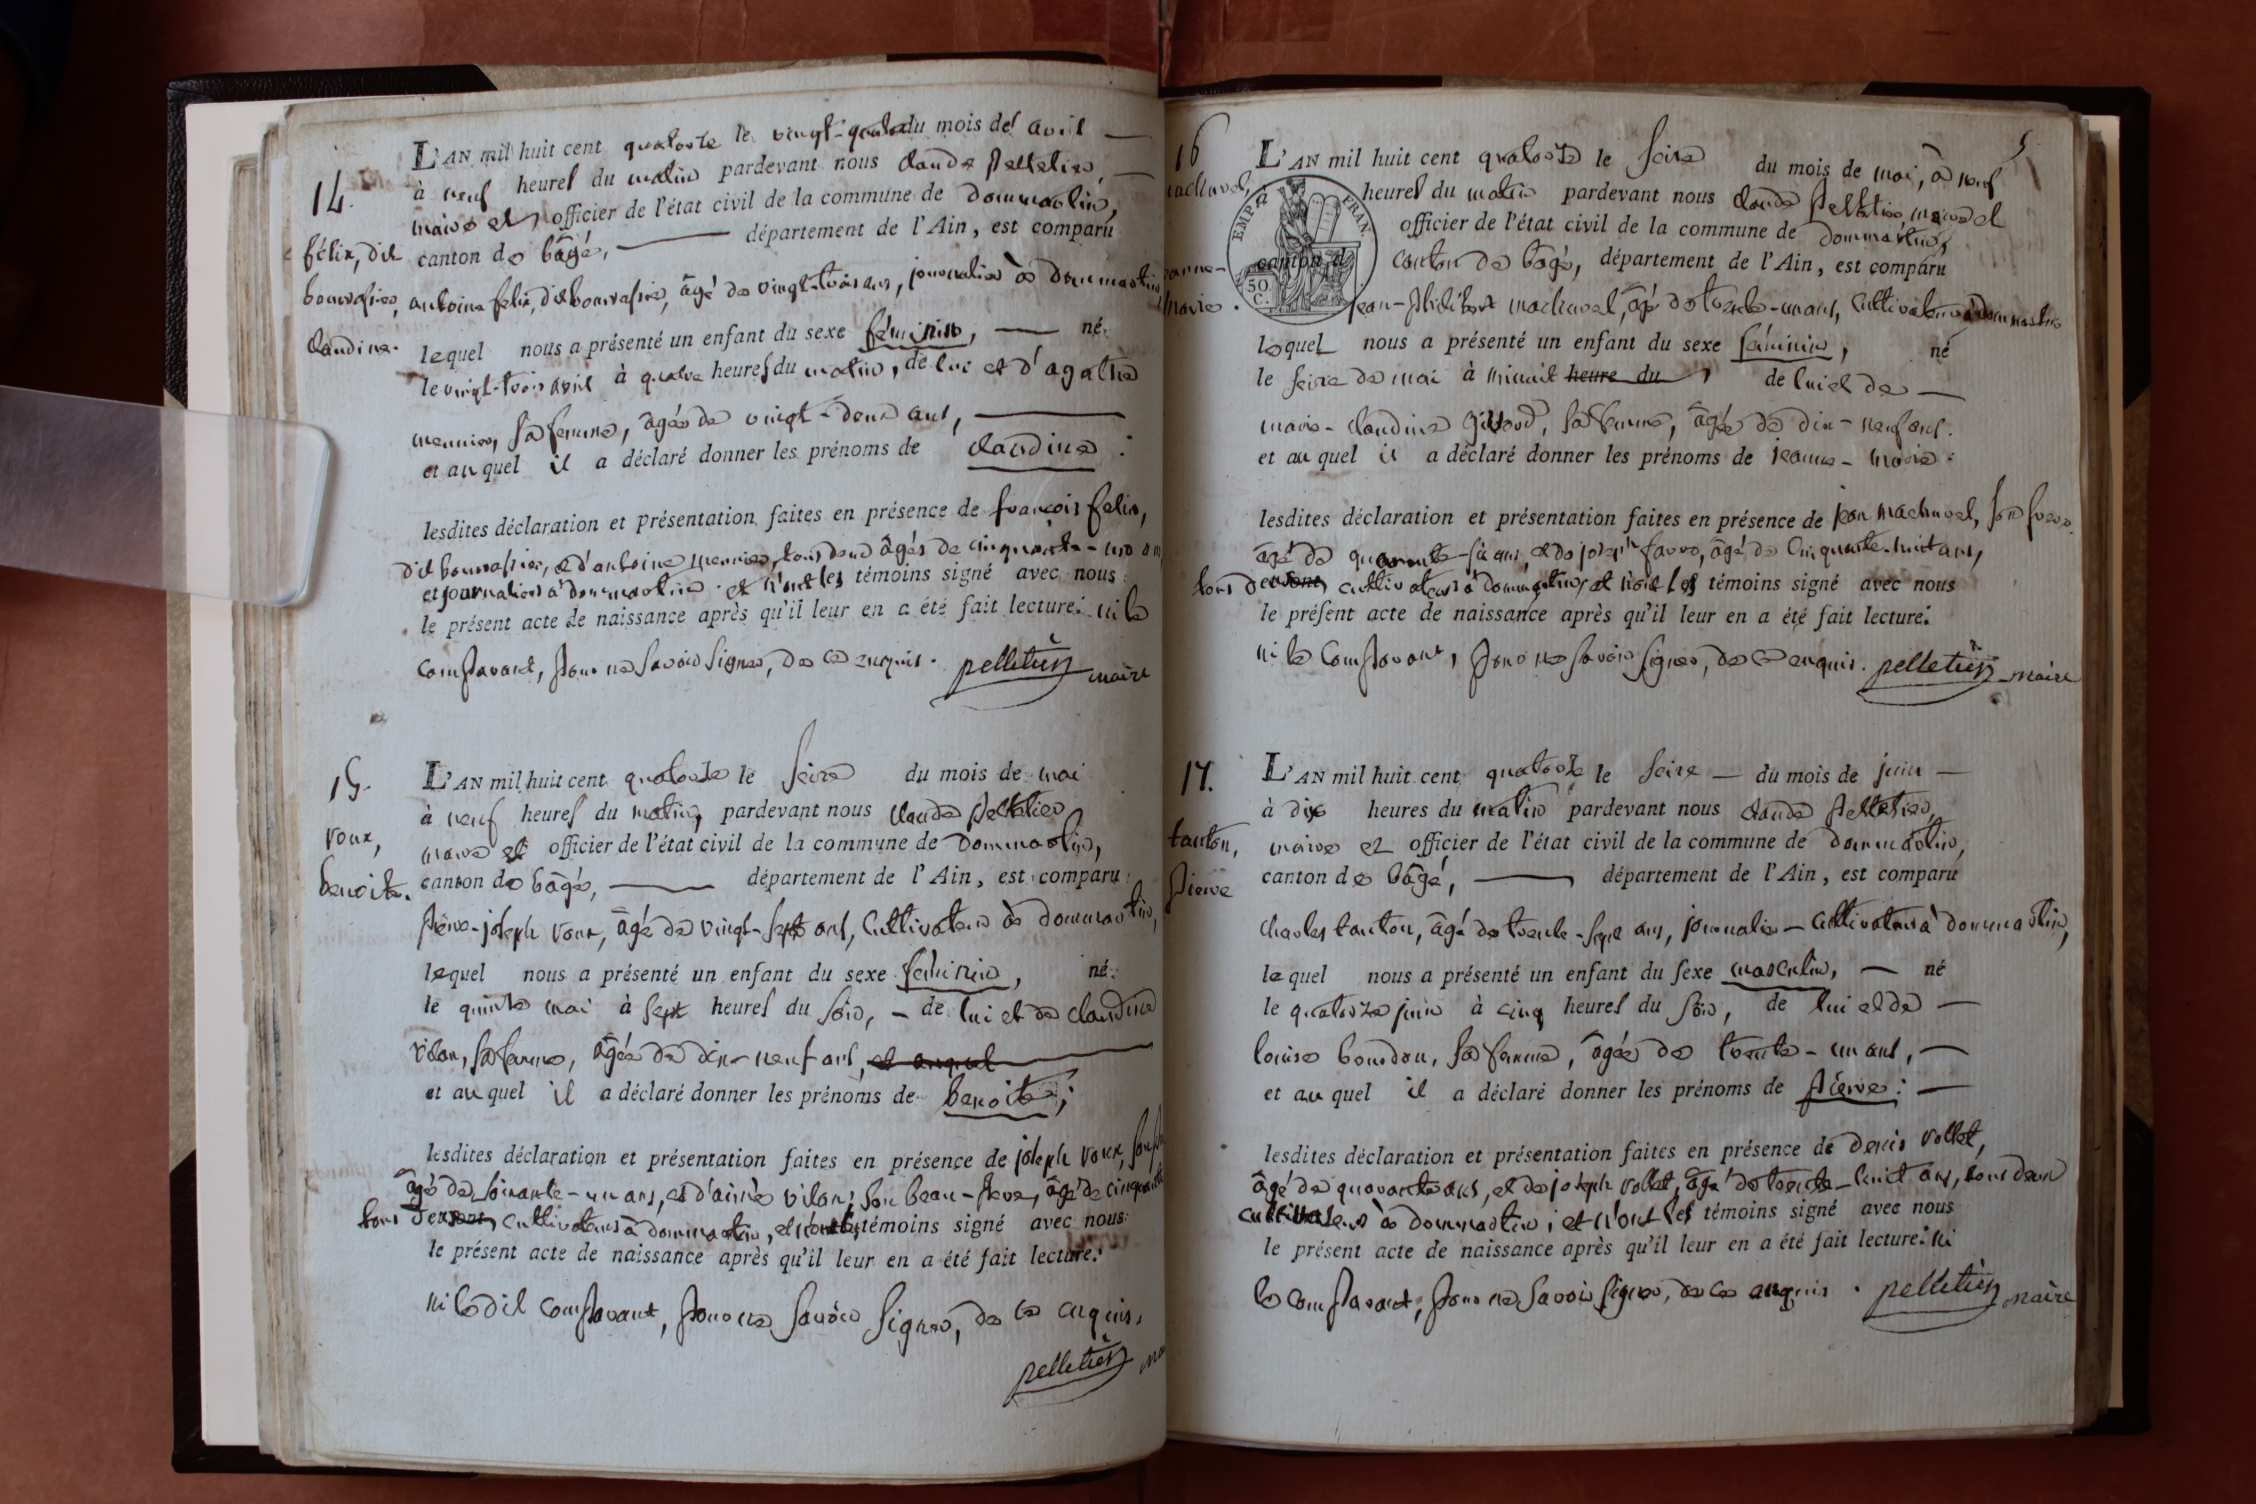 14.
félix, dit
bonnassies,
claudine.
L'AN mil huit cent quatorze le vingt-quatre du mois de avril
à neuf heures du matin pardevant nous claude pelletier,
maire et officier de l'état civil de la commune de dommartin,
canton de bâgé, département de l'Ain, est comparu
antoine felix, dit bonnassies, âgé de vingt-trois ans, journalier à dommartin
lequel nous a présenté un enfant du sexe féminin, né
le vingt-trois avril à quatre heures du matin, de lui et d'agathe
meunier, sa femme, âgée de vingt-deux ans,
et auquel il a déclaré donner les prénoms de claudine :
lesdites déclaration et présentation faites en présence de françois felix,
dit bonnassies, et d'antoine meunier, tous deux âgés de cinquante-un ans
et journaliers à dommartin. et n'ont les témoins signé avec nous
le présent acte de naissance après qu'il leur en a été fait lecture. ni le
comparant, pour ne savoir signer, de ce enquis. pelletier maire
15.
voux,
benoite.
L'AN mil huit cent quatorze le seize du mois de mai
à neuf heures du matin, pardevant nous claude pelletier
maire et officier de l'état civil de la commune de dommartin,
canton de bâgé, département de l'Ain, est comparu
pierre-joseph voux, âgé de vingt-sept ans, cultivateur à dommartin,
lequel nous a présenté un enfant du sexe féminin, né
le quinze mai à sept heures du soir, de lui et de claudine
vilon, sa femme, âgée de dix-neuf ans, et auquel
et auquel il a déclaré donner les prénoms de benoite ;
lesdites déclaration et présentation faites en présence de joseph voux, son
âgé de soixante-un ans, et d'aimé vilon, son beau-frère, âgé de cinquante
tous deux cultivateurs à dommartin, et n'ont les témoins signé avec nous
le présent acte de naissance après qu'il leur en a été fait lecture.
ni le dit comparant, pour ne savoir signer, de ce enquis.
pelletier
5
16
machurel,
jeanne-
marie.
EMP. FRAN.
50 C.
L'AN mil huit cent quatorze le seize du mois de mai, à neuf
à heures du matin pardevant nous claude pelletier, maire et
officier de l'état civil de la commune de dommartin,
canton d canton de bâgé, département de l'Ain, est comparu
jean-philibert machurel, âgé de trente-un ans, cultivateur à dommartin
lequel nous a présenté un enfant du sexe féminin, né
le seize de mai à minuit heure du, de lui et de
marie-claudine, sa femme, âgée de dix-neuf ans.
et auquel il a déclaré donner les prénoms de jeanne-marie :
lesdites déclaration et présentation faites en présence de jean machurel, son frère
âgé de quarante-six ans, et de joseph favre, âgé de cinquante-huit ans,
tous deux cultivateurs à dommartin, et n'ont les témoins signé avec nous
le présent acte de naissance après qu'il leur en a été fait lecture.
ni le comparant, pour ne savoir signer, de ce enquis. pelletier maire
17.
tanton,
pierre
L'AN mil huit cent quatorze le seize du mois de juin
à dix heures du matin pardevant nous claude pelletier,
maire et officier de l'état civil de la commune de dommartin,
canton de bâgé, département de l'Ain, est comparu
charles tanton, âgé de trente-sept ans, journalier-cultivateur à dommartin,
lequel nous a présenté un enfant du sexe masculin, né
le quatorze juin à cinq heures du soir, de lui et de
louise bourdon, sa femme, âgée de trente-un ans,
et auquel il a déclaré donner les prénoms de pierre :
lesdites déclaration et présentation faites en présence de denis vollet,
âgé de quarante ans, et de joseph vollet, âgé de trente-huit ans, tous deux
cultivateurs à dommartin ; et n'ont les témoins signé avec nous
le présent acte de naissance après qu'il leur en a été fait lecture. ni
le comparant, pour ne savoir signer, de ce enquis. pelletier maire